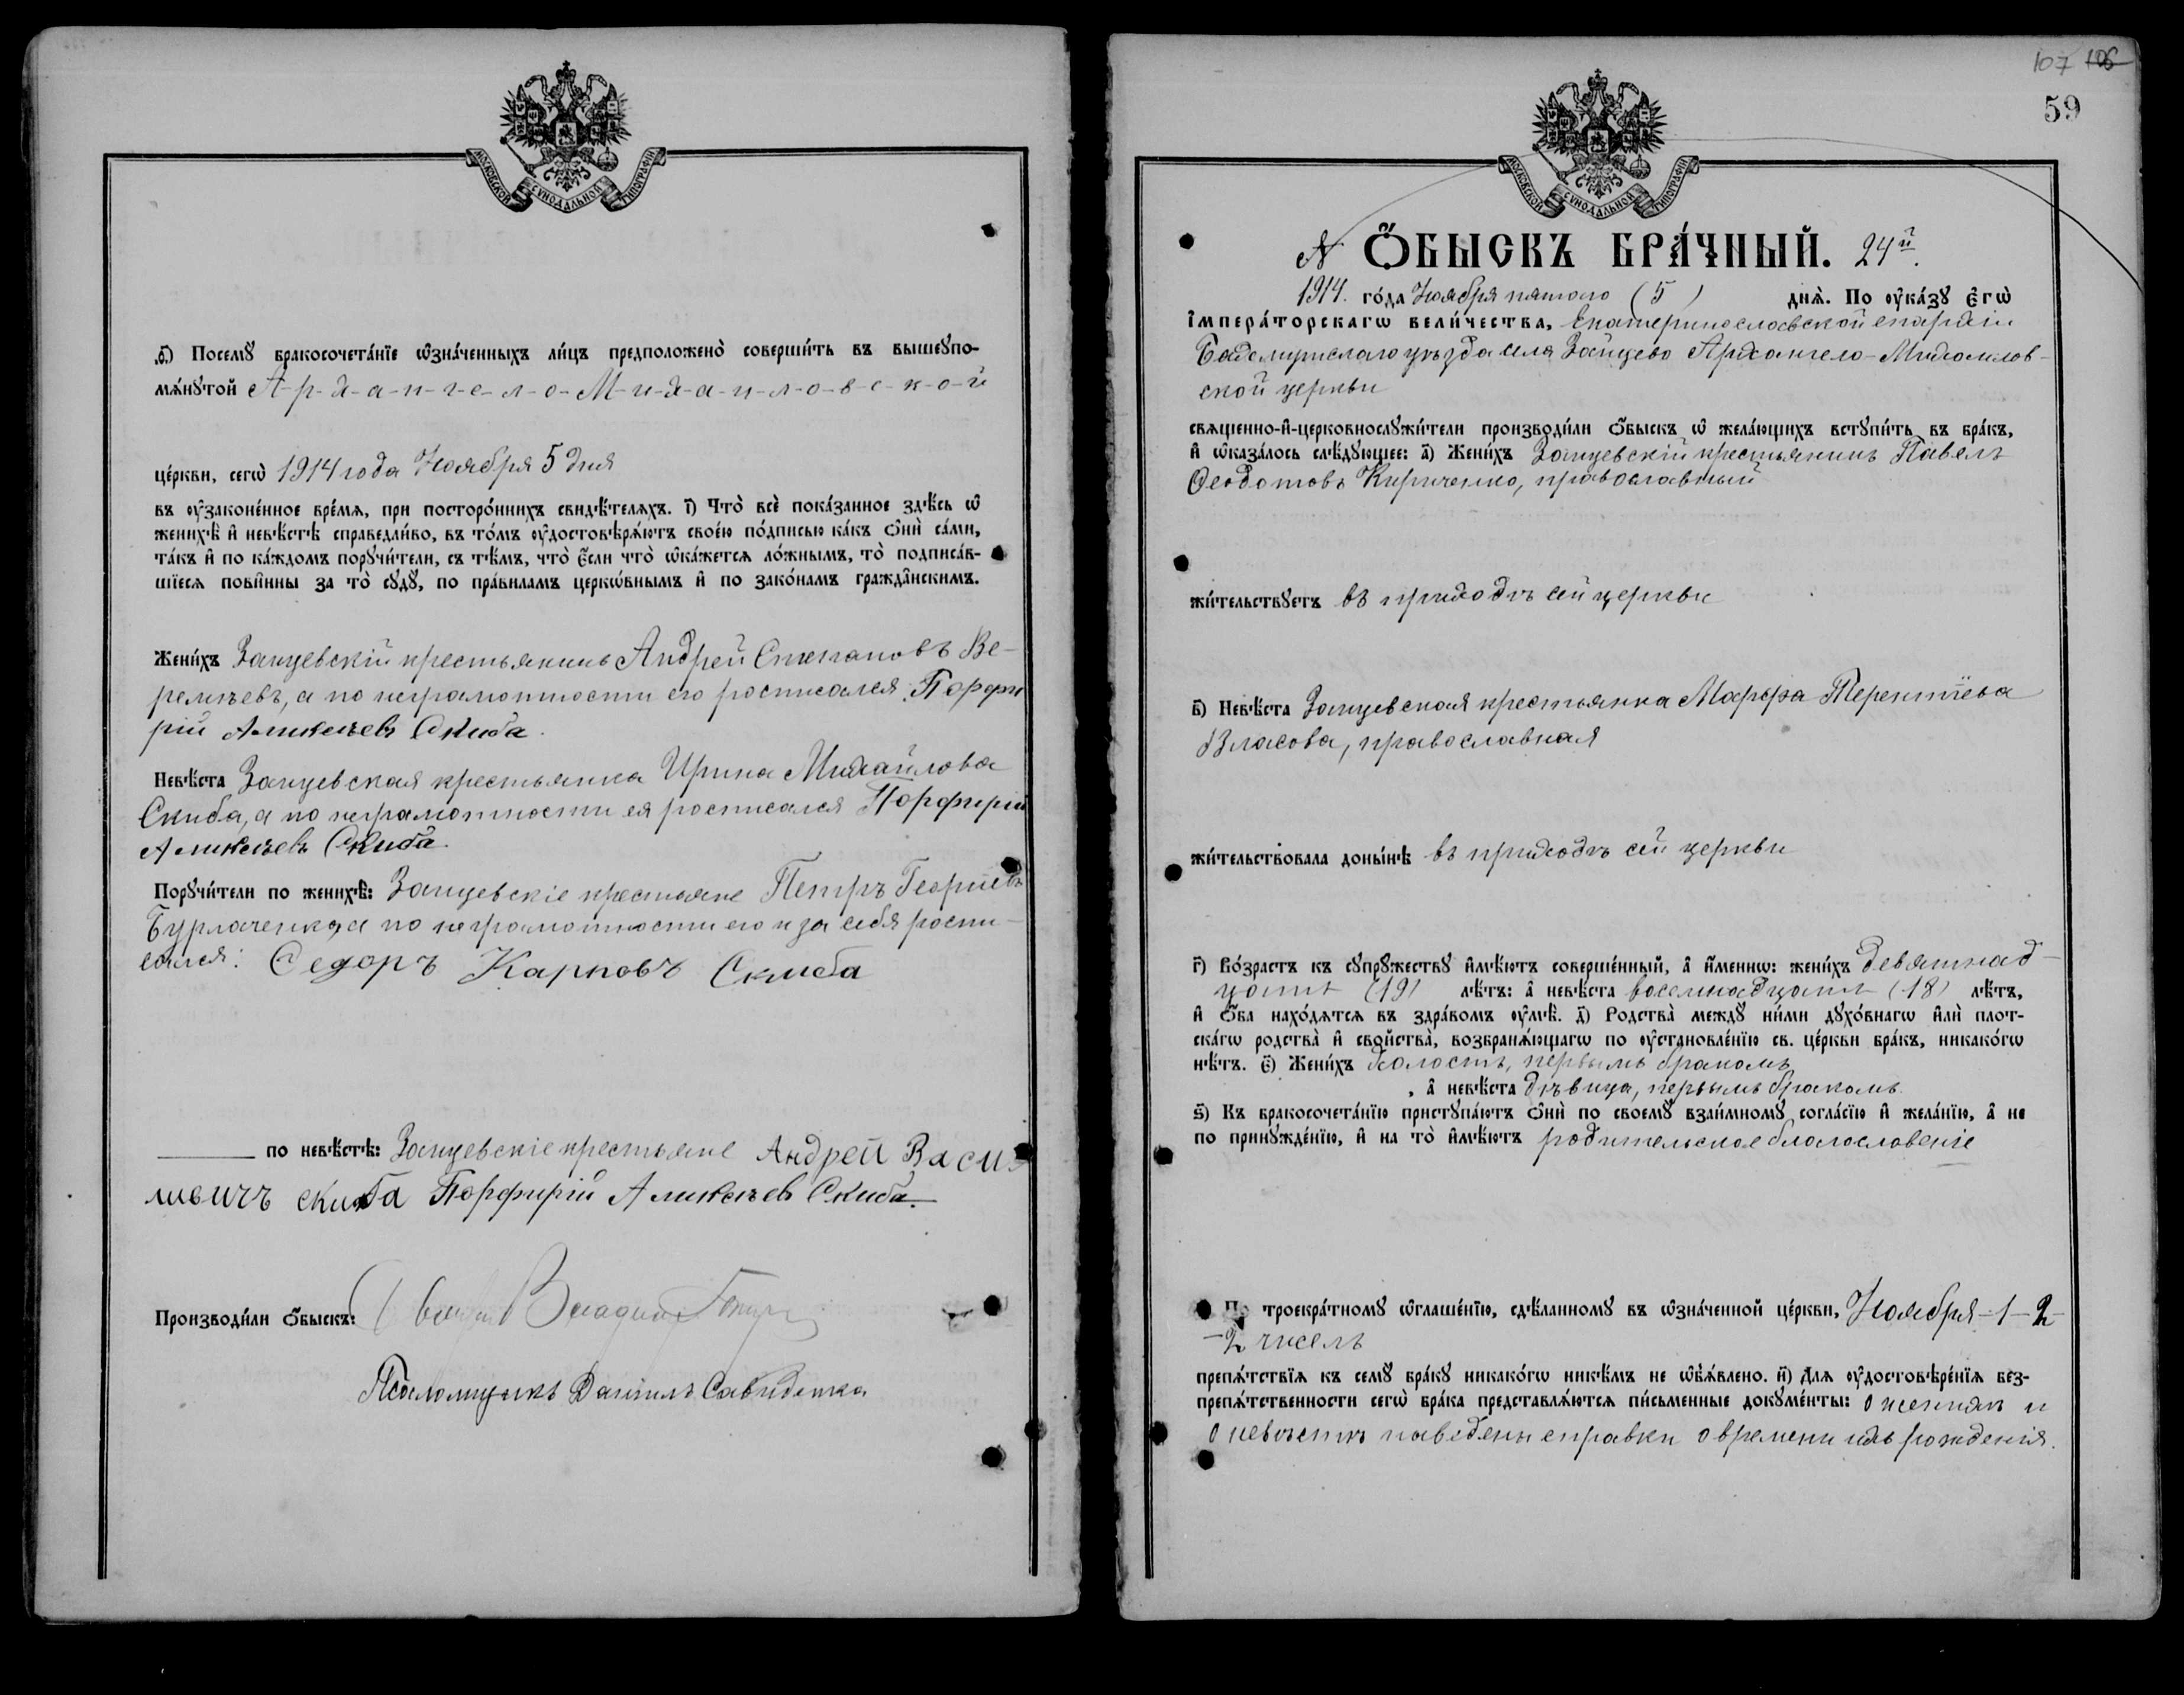 МОСКОВСКОЙ СѴНОДАЛЬНОЙ ТИПОГРАФІИ
ѳ҃) Посемꙋ бракосочета́нїе ѡ҆зна́ченныхъ ли́цъ предположено̀ соверши́ть въ вышеꙋпо-
мѧ́нꙋтой А-р-х-а-н-г-е-л-о-М-и-х-а-и-л-о-в-с-к-о-й
це́ркви, сегѡ̀ 1914 года Ноября 5 дня
въ ᲂу҆законе́нное вре́мѧ, при посторо́ннихъ свидѣ́телѧхъ. і҃) Что̀ всѐ пока́занное здѣ́сь ѡ҆
женихѣ̀ и҆ невѣ́стѣ справедли́во, въ то́мъ ᲂу҆достовѣрѧ́ютъ свое́ю по́дписью ка́къ ѻ҆нѝ са́ми,
та́къ и҆ по ка́ждомъ порꙋчи́тели, съ тѣ́мъ, что̀ є҆́сли что̀ ѡ҆ка́жетсѧ ло́жнымъ, то̀ подписа́в-
шїесѧ пови́нны за то̀ сꙋдꙋ̀, по пра́виламъ церкѡ́внымъ и҆ по зако́намъ гражда́нскимъ.
Жени́хъ Зайцевскій крестьянинъ Андрей Степановъ Ве-
ремѣевъ, а по неграмотности его росписался: Порфи
рій Аликсѣевъ Скиба.
Невѣ́ста Зайцевская крестьянка Ирина Михайлова
Скиба, а по неграмотности ея росписался Порфирій
Аликсѣевъ Скиба.
Порꙋчи́тели по женихѣ̀: Зайцевскіе крестьяне Петръ Георгіевъ
Бурлаченко, а по неграмотности его и за себя роспи-
сался: Федоръ Карповъ Скиба
по невѣ́стѣ: Зайцевскіе крестьяне Андрей Васи
лиевичъ скиба Порфирій Аликсѣевъ Скиба.
Производи́ли ѻ҆́быскъ:
Псаломщикъ Даніилъ
107 106
59
МОСКОВСКОЙ СѴНОДАЛЬНОЙ ТИПОГРАФІИ
№ Ѻ҆́БЫСКЪ БРА́ЧНЫЙ. 24й.
1914. го́да Ноября пятого (5) днѧ̀. По ᲂу҆ка́зꙋ Є҆гѡ̀
І҆мпера́торскагѡ вели́чества, Екатеринославской епархіи
Бахмутскаго уѣзда села Зайцево Архангело-Михаилов-
ской церкви
свѧщенно-и҆-церковнослꙋжи́тели производи́ли ѻ҆́быскъ ѡ҆ жела́ющихъ встꙋпи́ть въ бра́къ,
и҆ ѡ҆каза́лось слѣ́дꙋющее: а҃) Жени́хъ Зайцевскій крестьянинъ Павелъ
Ѳеодотовъ Кириченко, православный
жи́тельствꙋетъ въ приходѣ сей церкви
в҃) Невѣ́ста Зайцевская крестьянка Марѳа Терентіева
Власова, православная
жи́тельствовала доны́нѣ въ приходѣ сей церкви
г҃) Во́зрастъ къ сꙋпрꙋжествꙋ̀ и҆мѣ́ютъ соверше́нный, а҆ и҆́меннѡ: жени́хъ девятнад-
цать (19) лѣ́тъ: а҆ невѣ́ста восемнадцать (18) лѣ́тъ,
и҆ ѻ҆́ба нахо́дѧтсѧ въ здра́вомъ ᲂу҆мѣ̀. д҃) Родства̀ междꙋ̀ ни́ми дꙋхо́внагѡ и҆лѝ плот-
ска́гѡ родства̀ и҆ сво́йства̀, возбранѧ́ющагѡ по ᲂу҆становле́нїю св. це́ркви бра́къ, никако́гѡ
нѣ́тъ. є҃) Жени́хъ холостъ, первымъ бракомъ
, а҆ невѣ́ста дѣвица, первымъ бракомъ.
ѕ҃) Къ бракосочета́нїю пристꙋпа́ютъ ѻ҆нѝ по своемꙋ̀ взаи́мномꙋ согла́сїю и҆ жела́нїю, а҆ не
по принꙋжде́нїю, и҆ на то̀ и҆мѣ́ютъ родительское благословеніе
По троекра́тномꙋ ѡ҆глаше́нїю, сдѣ́ланномꙋ въ ѡ҆зна́ченной це́ркви, Ноября-1-2-
-2 чиселъ
препѧ́тствїѧ къ семꙋ̀ бра́кꙋ никако́гѡ никѣ́мъ не ѡ҆б̾ѧ́влено. и҃) Длѧ ᲂу҆достовѣре́нїѧ без-
препѧ́тственности сегѡ̀ бра́ка представлѧ́ютсѧ пи́сьменные докꙋме́нты: о женихѣ и
о невѣстѣ наведены справки о времени ихъ рожденія.